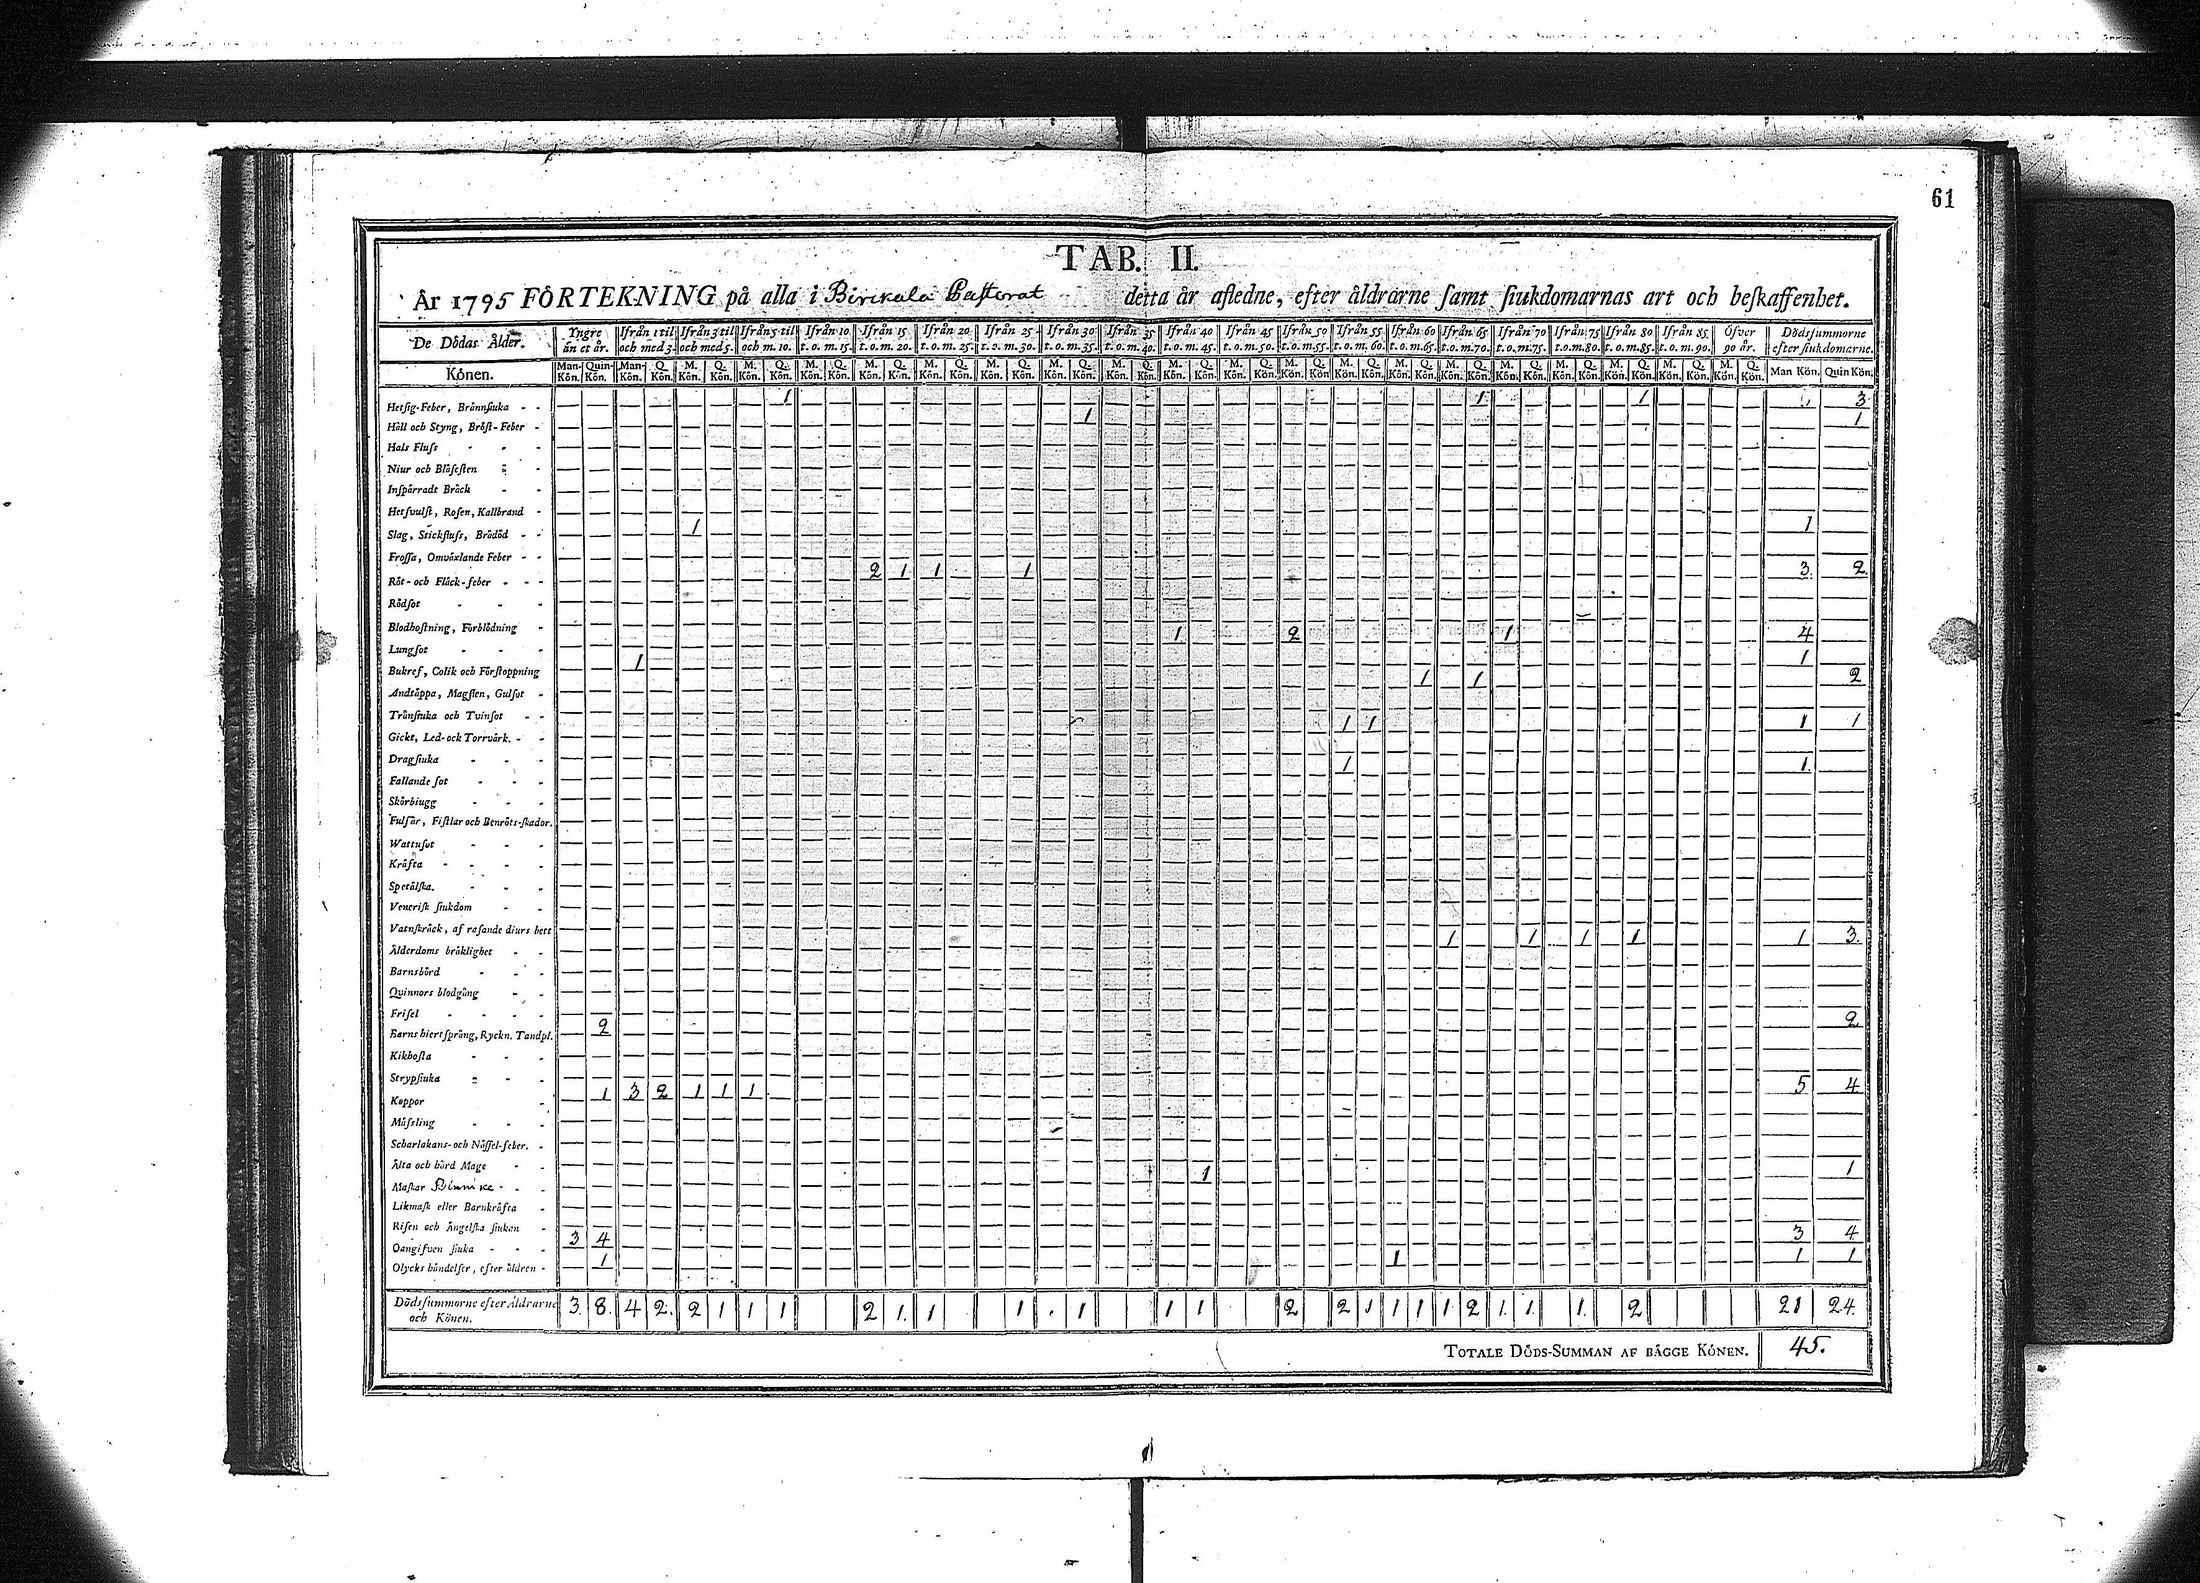 61
TAB. II.
År 1795 FÖRTEKNING på alla i Birckala Pastorat detta år afledne, efter åldrarne samt siukdomarnas art och beskaffenhet.
De Dödas Ålder. Yngre än et år. Ifrån 1 til och med 3. Ifrån 3 til och med 5. Ifrån 5 til och m. 10. Ifrån 10 t. o. m. 15. Ifrån 15 t. o. m. 20. Ifrån 20 t. o. m. 25. Ifrån 25 t. o. m. 30. Ifrån 30 t. o. m. 35. Ifrån 35 t. o. m. 40. Ifrån 40 t. o. m. 45. Ifrån 45 t. o. m. 50. Ifrån 50 t. o. m. 55. Ifrån 55 t. o. m. 60. Ifrån 60 t. o. m. 65. Ifrån 65 t. o. m. 70. Ifrån 70 t. o. m. 75. Ifrån 75 t. o. m. 80. Ifrån 80 t. o. m. 85. Ifrån 85 t. o. m. 90. Öfver 90 år. Dödssummorne efter siukdomarne.
Könen. Man-Kön. Quin-Kön. Man-Kön. Q. Kön. M. Kön. Q. Kön. M. Kön. Q. Kön. M. Kön. Q. Kön. M. Kön. Q. Kön. M. Kön. Q. Kön. M. Kön. Q. Kön. M. Kön. Q. Kön. M. Kön. Q. Kön. M. Kön. Q. Kön. M. Kön. Q. Kön. M. Kön. Q. Kön. M. Kön. Q. Kön. M. Kön. Q. Kön. M. Kön. Q. Kön. M. Kön. Q. Kön. M. Kön. Q. Kön. M. Kön. Q. Kön. M. Kön. Q. Kön. M. Kön. Q. Kön. Man Kön. Quin Kön.
Hetsig-Feber, Brännsiuka 1 1 1 3
Håll och Styng, Bröst-Feber 1 1
Hals Fluss
Niur och Blåsesten
Inspärradt Bråck
Hetsvulst, Rosen, Kallbrand
Slag, Stickfluss, Brådöd 1 1
Frossa, Omväxlande Feber
Röt- och Fläck-feber 2 1 1 1 3. 2.
Rödsot
Blodhostning, Förblödning
Lungsot 1 2 1 4
Bukref, Colik och Förstoppning 1 1
Andtäppa, Magsten, Gulsot 1 1 2
Trånsiuka och Tvinsot
Gickt, Led- ock Torrvärk. 1 1 1 1
Dragsiuka
Fallande sot 1 1.
Skörbiugg
Fulsår, Fistlar och Benröts-skador.
Wattusot
Kräfta
Spetälska.
Venerisk siukdom
Vatnskräck, af rasande diurs bett
Ålderdoms bräklighet 1 1 1 1 1 3.
Barnsbörd
Quinnors blodgång
Frisel
Barns hiertsprång, Ryckn. Tandpl. 2 2
Kikhosta
Strypsiuka
Koppor 1 3 2 1 1 1 5 4
Mässling
Scharlakans- och Nässel-feber.
Älta och hård Mage
Maskar Binnike 1 1
Likmask eller Barnkräfta
Risen och Ängelska siukan
Oangifven siuka 3 4 3 4
Olycks händelser, efter åldren 1 1 1 1
Dödssummorne efter Åldrarne och Könen. 3. 8. 4 2. 2 1 1 1 2 1. 1 1 1 1 1 2 2 1 1 1 1 2 1. 1. 1. 2 21 24.
TOTALE DÖDS-SUMMAN AF BÄGGE KÖNEN. 45.